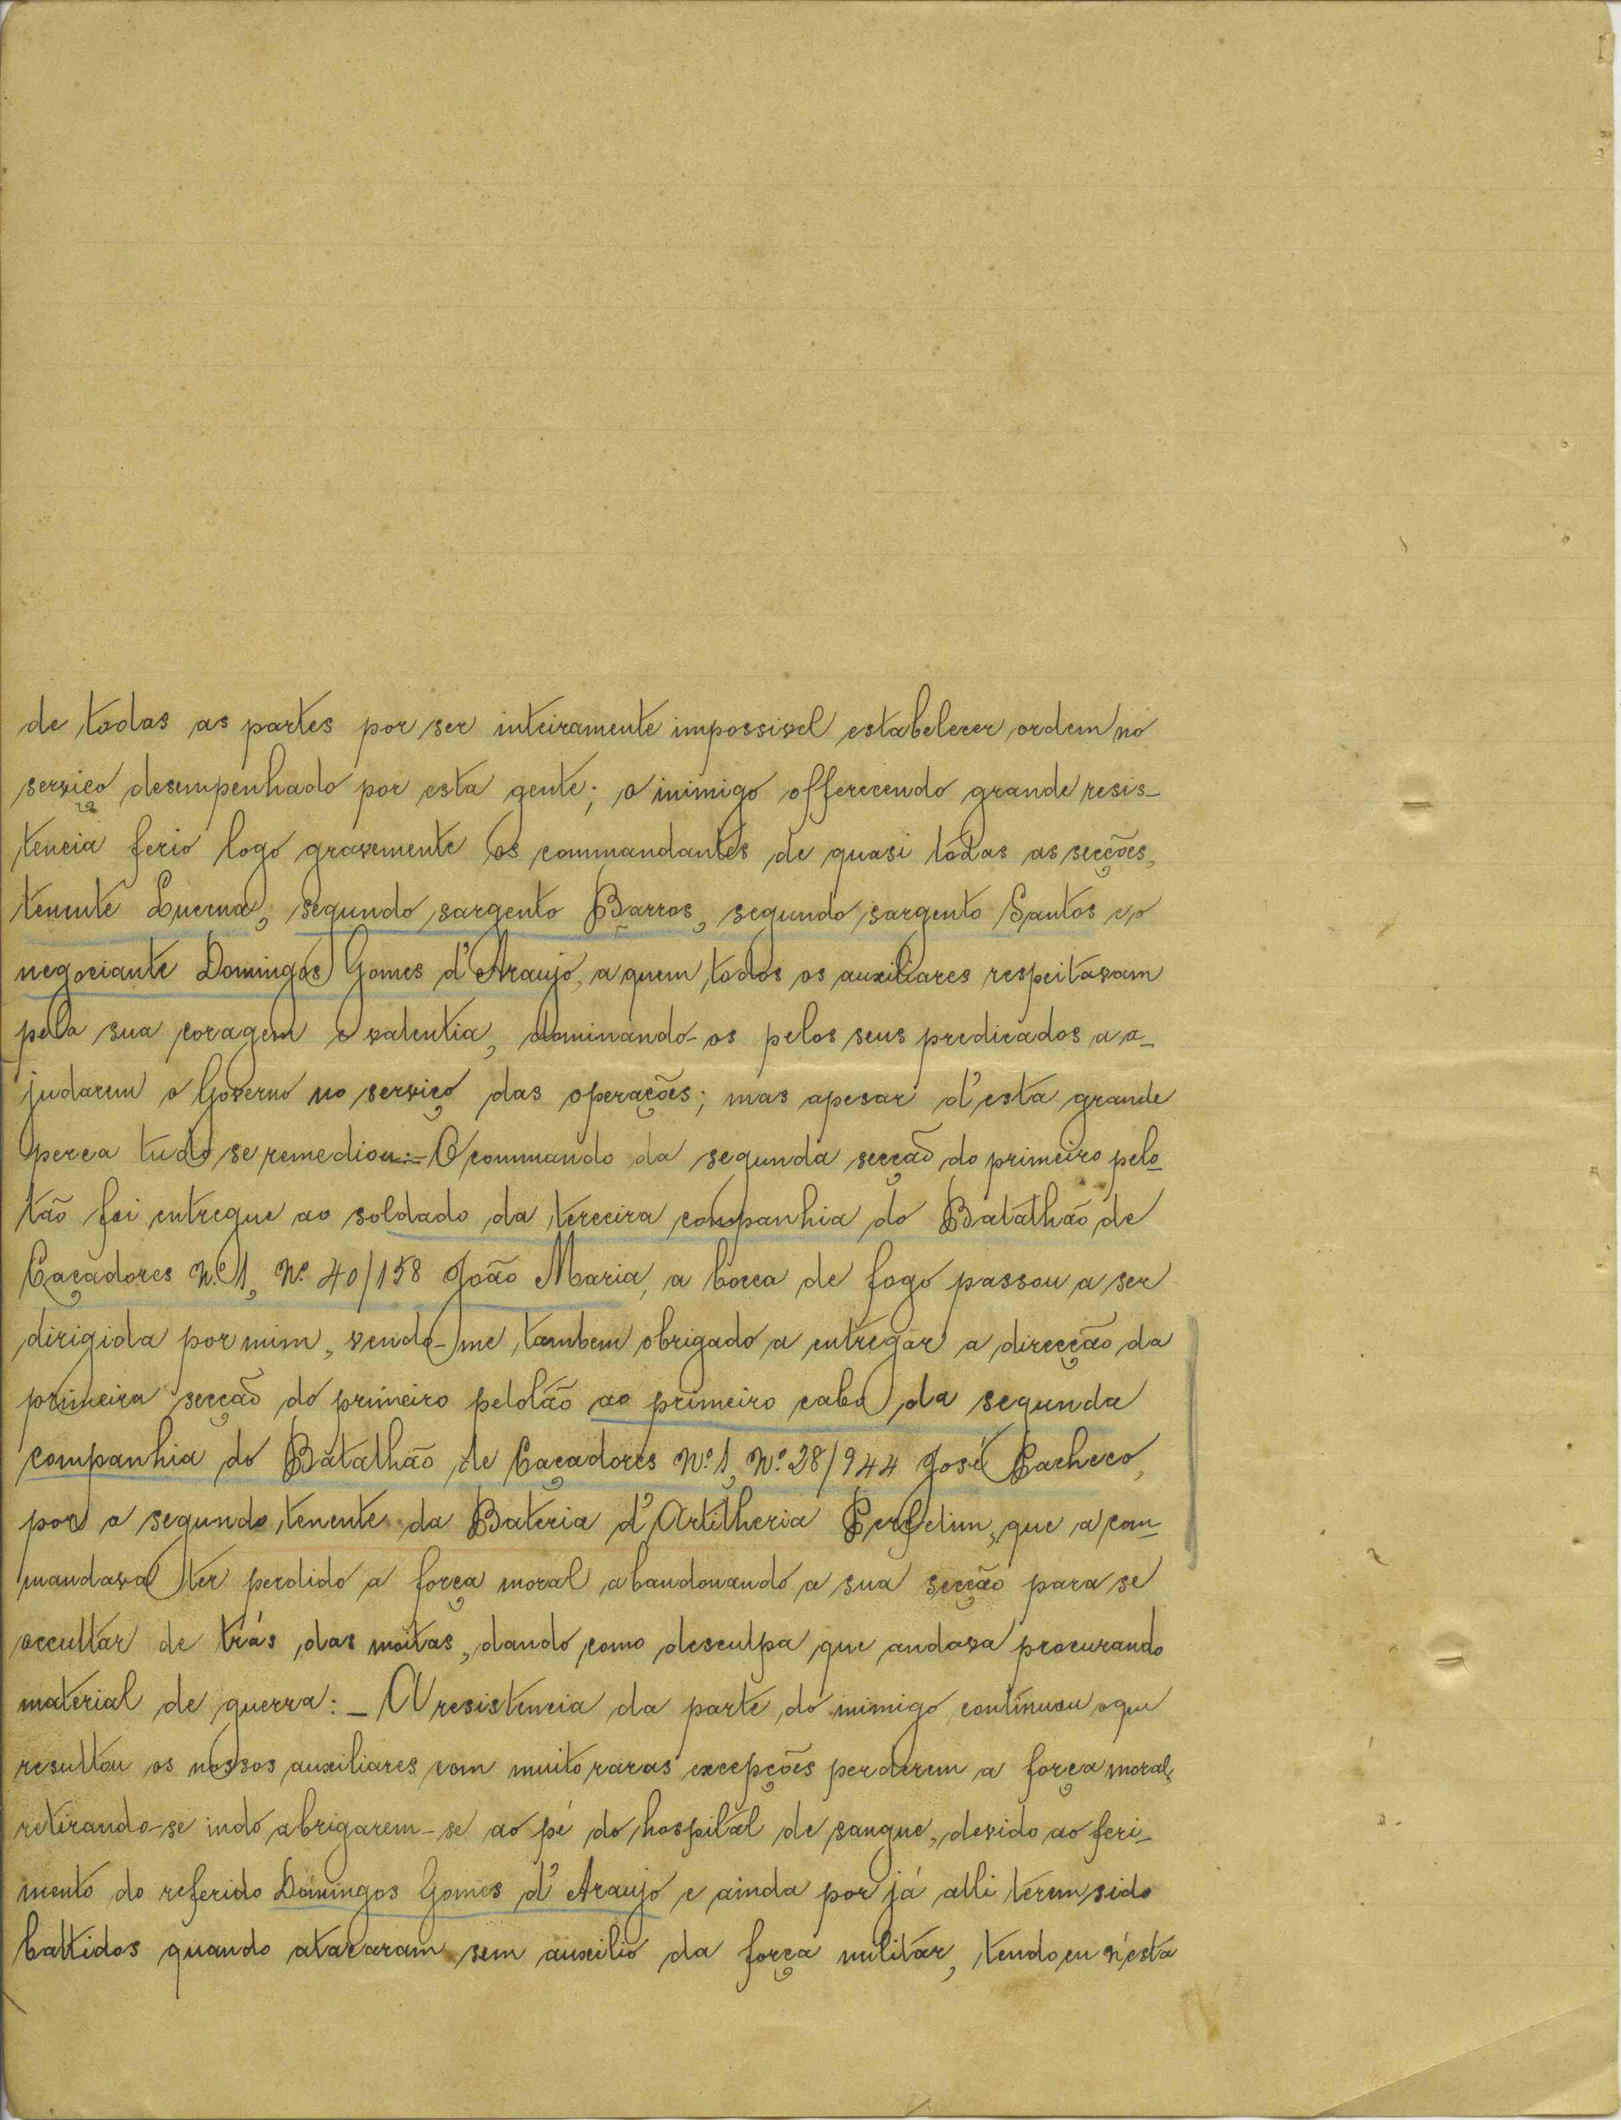 de todas as partes por ser inteiramente impossivel estabelecer ordem no
serviço desempenhado por esta gente; o inimigo offerecendo grande resis-
tencia ferio logo gravemente os commandantes de quasi todas as secções,
tenente Lucena, segundo sargento Barros, segundo sargento Santos e o
negociante Domingos Gomes d'Araujo, a quem todos os auxiliares respeitavam
pela sua coragem e valentia, dominando-os pelos seus predicados a a-
judarem o Governo no serviço das operações; mas apesar d'esta grande
perca tudo se remediou:- O commando da segunda secção do primeiro pelo-
tão foi entregue ao soldado da terceira companhia do Batalhão de
Caçadores Nº 1, Nº 40/158 João Maria, a bocca de fogo passou a ser
dirigida por mim, vendo-me tambem obrigado a entregar a direcção da
primeira secção do primeiro pelotão ao primeiro cabo da segunda
companhia do Batalhão de Caçadores Nº 1, Nº 28/944 José Pacheco,
por o segundo tenente da Bateria d'Artilheria que a com-
mandava ter perdido a força moral abandonando a sua secção para se
occultar de trás das moitas, dando como desculpa que andava procurando
material de guerra: - A resistencia da parte do inimigo continuou o que
resultou os nossos auxiliares com muito raras excepções perderem a força moral,
retirando-se indo abrigarem-se ao pé do hospital de sangue, devido ao feri-
mento do referido Domingos Gomes d'Araujo e ainda por já alli terem sido
battidos quando atacaram sem auxilio da força militar, tendo eu n'esta